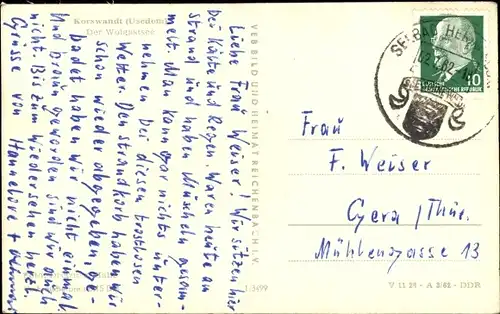 Korswandt (Usedom)
Der Wolgastsee
Liebe Frau Weiser! Wir sitzen hier
bei Kälte und Regen. Waren heute am
Strand und haben Muscheln gesam-
melt. Man kann gar nichts unter-
nehmen bei diesem trostlosen
Wetter. Den Strandkorb haben wir
schon wieder abgegeben, ge-
badet haben wir nicht einmal.
Und braun geworden sind wir auch
nicht. Bis zum Wiedersehen herzl.
Grüsse von
Hannelore +
VEB BILD UND HEIMAT REICHENBACH I. V.
Frau
F. Weiser
Gera / Thür.
Mühlengasse 13
V 11 28 - A 2/62 - DDR
SEEBAD
40